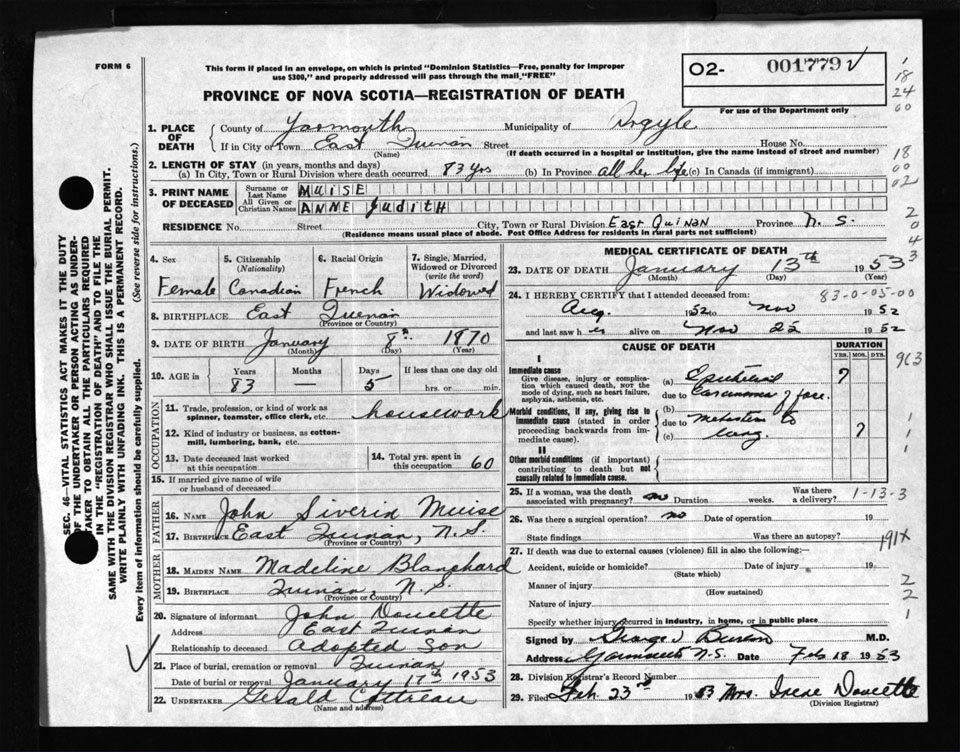 FORM 6
This form if placed in an envelope, on which is printed "Dominion Statistics—Free, penalty for improper
use $300," and properly addressed will pass through the mail "FREE"
PROVINCE OF NOVA SCOTIA—REGISTRATION OF DEATH
O2- 001779
For use of the Department only
1
18
24
00
18
00
02
2
0
4
3
SEC. 46—VITAL STATISTICS ACT MAKES IT THE DUTY
OF THE UNDERTAKER OR PERSON ACTING AS UNDER-
TAKER TO OBTAIN ALL THE PARTICULARS REQUIRED
IN THE "REGISTRATION OF DEATH" AND TO FILE THE
SAME WITH THE DIVISION REGISTRAR WHO SHALL ISSUE THE BURIAL PERMIT.
WRITE PLAINLY WITH UNFADING INK. THIS IS A PERMANENT RECORD.
Every item of information should be carefully supplied. (See reverse side for instructions.)
1. PLACE OF DEATH
County of Yarmouth Municipality of Argyle
If in City or Town East Quinan Street House No.
(Name) (If death occurred in a hospital or institution, give the name instead of street and number)
2. LENGTH OF STAY (in years, months and days)
(a) In City, Town or Rural Division where death occurred 83 yrs (b) In Province all her life (c) In Canada (if immigrant)
3. PRINT NAME OF DECEASED
Surname or Last Name MUISE
All Given or Christian Names ANNE JUDITH
RESIDENCE No. Street City, Town or Rural Division East Quinan Province N. S.
(Residence means usual place of abode. Post Office Address for residents in rural parts not sufficient)
4. Sex 5. Citizenship (Nationality) 6. Racial Origin 7. Single, Married, Widowed or Divorced (write the word)
Female Canadian French Widowed
8. BIRTHPLACE East Quinan
(Province or Country)
9. DATE OF BIRTH January 8th 1870
(Month) (Day) (Year)
10. AGE in Years Months Days If less than one day old
83 — 5 hrs. or min.
OCCUPATION
11. Trade, profession, or kind of work as spinner, teamster, office clerk, etc. housework
12. Kind of industry or business, as cotton-mill, lumbering, bank, etc.
13. Date deceased last worked at this occupation
14. Total yrs. spent in this occupation 60
15. If married give name of wife or husband of deceased
FATHER
16. NAME John Siverin Muise
17. BIRTHPLACE East Quinan, N. S.
(Province or Country)
MOTHER
18. MAIDEN NAME Madeline Blanchard
19. BIRTHPLACE Quinan, N. S.
(Province or Country)
20. Signature of informant John Doucette
Address East Quinan
Relationship to deceased Adopted Son
21. Place of burial, cremation or removal Quinan
Date of burial or removal January 17th 1953
22. UNDERTAKER Gerald Cottreau
(Name and address)
MEDICAL CERTIFICATE OF DEATH
23. DATE OF DEATH January 13th 1953
(Month) (Day) (Year)
24. I HEREBY CERTIFY that I attended deceased from: 83-0-05-00
Aug. 1952 to Nov 1952
and last saw her alive on Nov 22 1952
CAUSE OF DEATH
DURATION
YRS. MOS. DYS.
I
Immediate cause
Give disease, injury or complication which caused death, NOT the mode of dying, such as heart failure, asphyxia, asthenia, etc.
(a) Epithelial ?
due to Carcinoma of face.
Morbid conditions, if any, giving rise to immediate cause (stated in order proceeding backwards from immediate cause).
(b)
due to Metastasis to
(c) lung. ?
II
Other morbid conditions (if important) contributing to death but not causally related to immediate cause.
25. If a woman, was the death associated with pregnancy? no Duration weeks. Was there a delivery? 1-13-3
26. Was there a surgical operation? no Date of operation 19
State findings Was there an autopsy? 191X
27. If death was due to external causes (violence) fill in also the following:—
Accident, suicide or homicide? Date of injury 19
(State which)
Manner of injury
(How sustained)
Nature of injury
Specify whether injury occurred in industry, in home, or in public place
Signed by M.D.
Address Yarmouth N.S. Date Feb 18 1953
28. Division Registrar's Record Number
29. Filed Feb. 23rd 1953 Mrs. Irene Doucette
(Division Registrar)
1
1
2
2
1